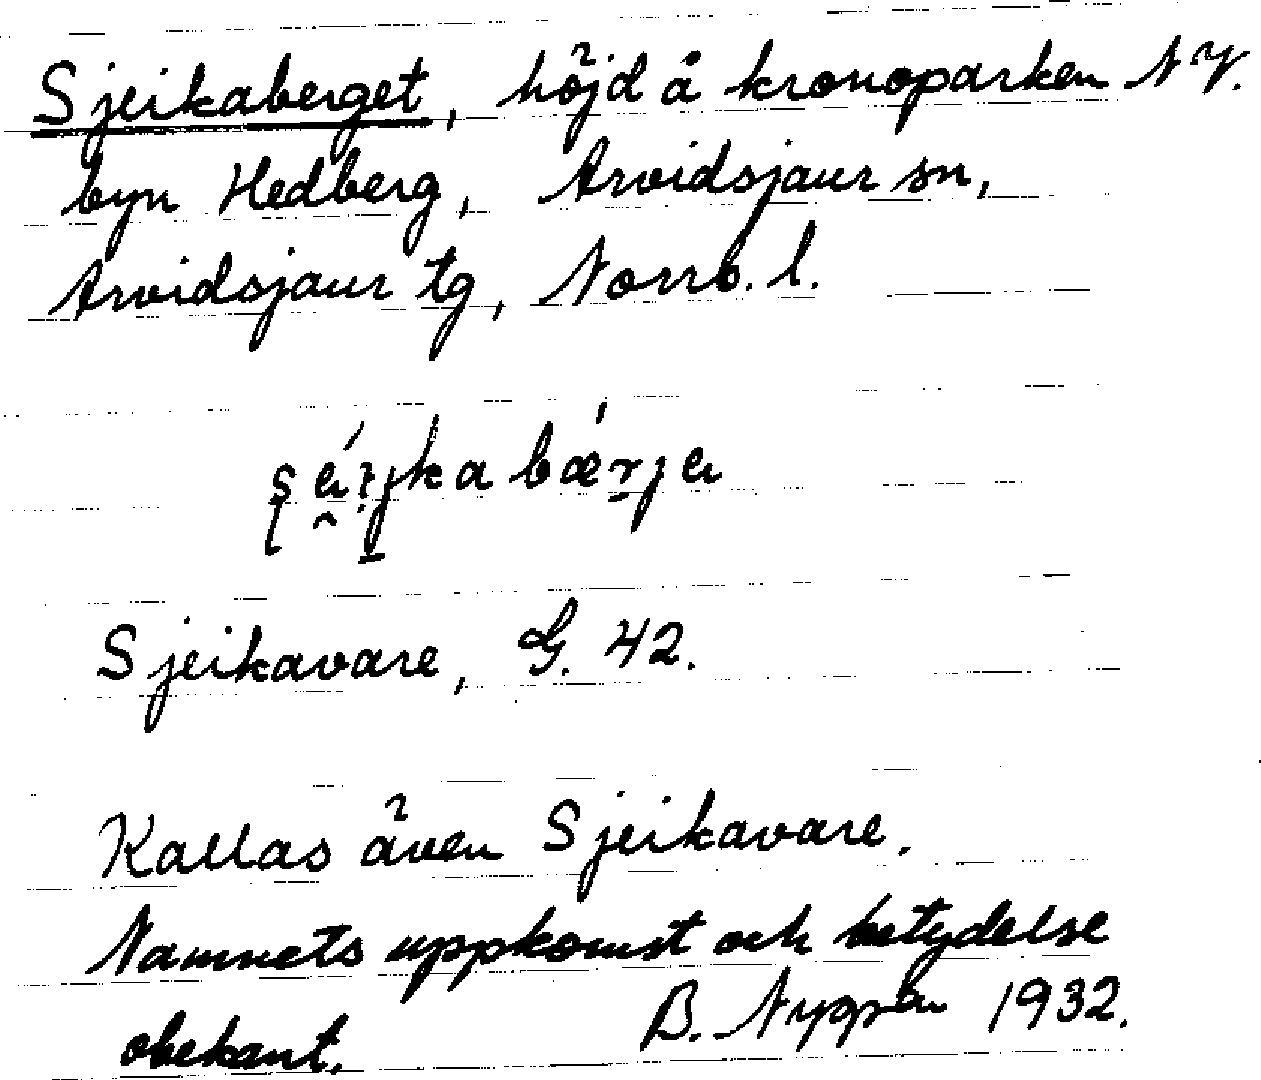 Sjeikaberget, höjd å kronoparken NV.
byn Hedberg, Arvidsjaur sn,
Arvidsjaur tg, Norrb. l.
Sjeikavare, G. 42.
Kallas även Sjeikavare.
Namnets uppkomst och betydelse
obekant. B. 1932.